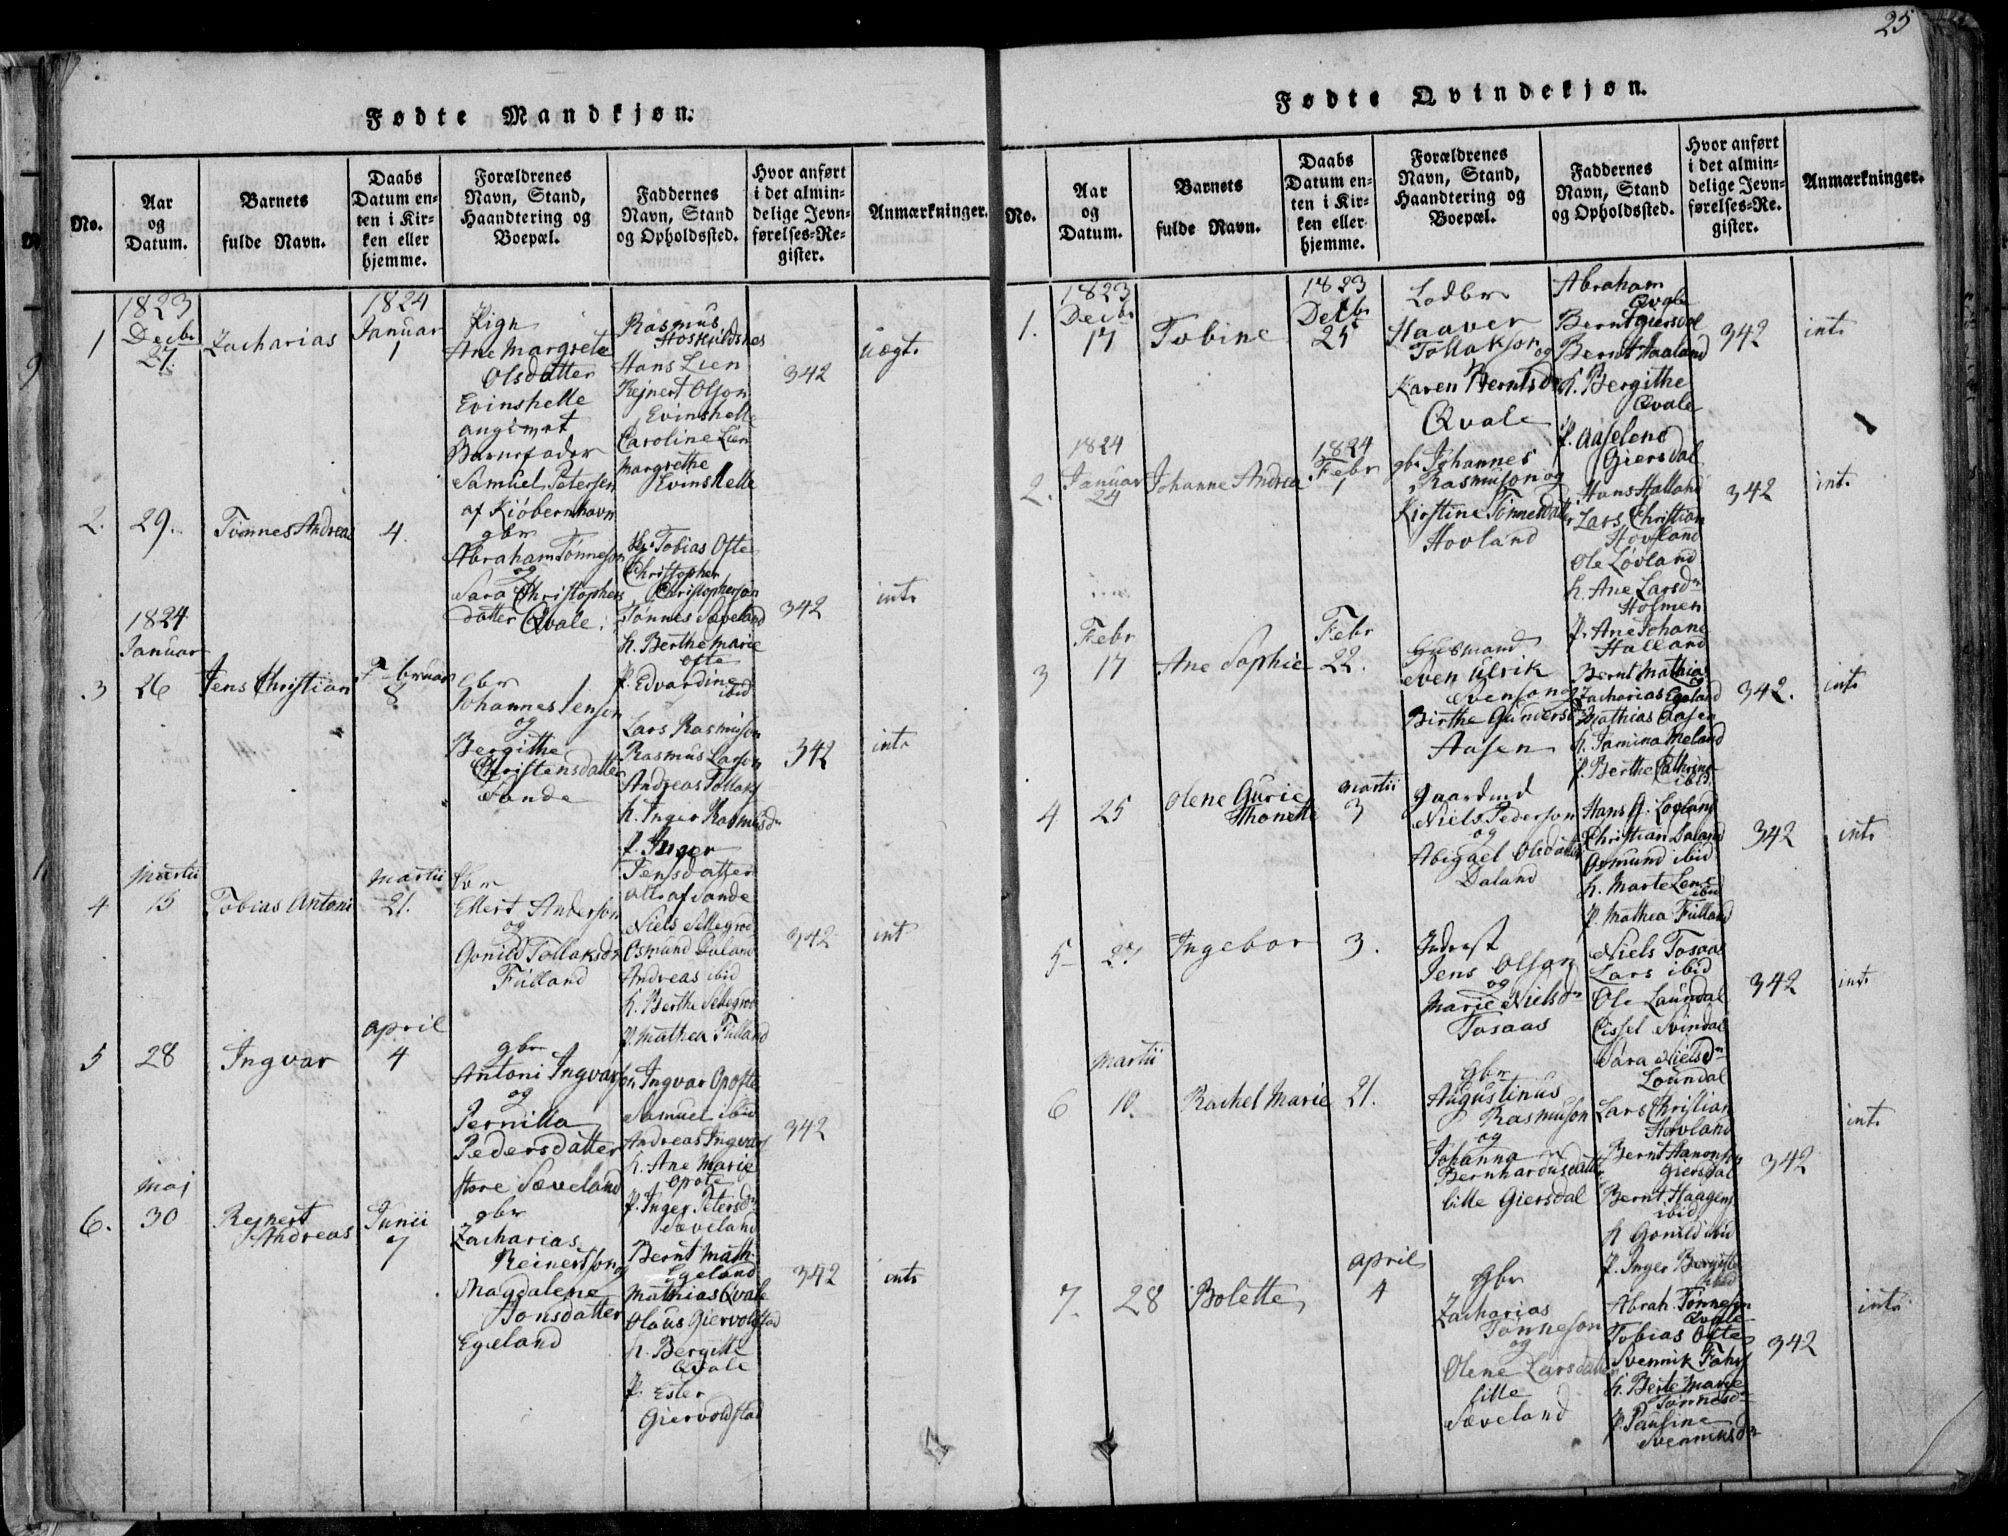 25
Fødte Mandkjøn.
No.
Aar
og
Datum.
Barnets
fulde Navn.
Daabs
Datum en-
ten i Kir-
ken eller
hjemme.
Forældrenes
Navn, Stand,
Haandtering og
Boepæl.
Faddernes
Navn, Stand
og Opholdssted.
Hvor anført
i det almin-
delige Jevn-
førelses-Re-
gister.
Anmærkninger.
1
1823
Decbr
27.
Zacharias
1824
Januar
1
Pige
Ane Margrete
Olsdatter
Evinshelle
angivet
Barnefader
Samuel Petersen
af Kiöbernhavn
Rasmus
Høskuldsnes
Hans Lien
Rejnert Olson
Evinshelle
Caroline Lien
Margrethe
Evinshelle
342
uægte
2.
29.
Tønnes Andreas
4.
gbr
Abraham Tønneson
og
Sara Christophers
datter Qvale
Tobias Ofte
Christopher
Christopherson
Tønnes Sæveland
h. Berthe Marie
Ofte
p. Edvardine
ibid
342
int.
1824
Januar
3
26
Jens Christian
Februar
8
gbr
Johannes Jensen
og
Bergithe
Christensdatter
Sande
Lars Rasmuson
Rasmus Larson
Andreas Tollaks
h. Inger Rasmusdr
p. Inger
Jensdatter
alle af Sande
342
int.
Martii
4
15
Tobias Antoni
Martii
21.
gbr
Ellert Anderson
og
Gonild Tollaksdr
Fülland
Niels Sellegrod
Osmund Daland
Andreas ibid
h. Berthe Sellegrod
p. Mathea Fülland
342
int
5
28
Ingvar
April
4
gbr
Antoni Ingvarson
og
Pernilla
Pedersdatter
store Sæveland
Ingvar Opofte
Samuel ibid
Andreas Ingvars
h. Ane Marie
Opofte
p. Inger Petersdr
Sæveland
342
Maj
6.
30
Rejnert
Andreas
Junii
7
gbr
Zacharias
Reinertson og
Magdalene
Tonsdatter
Egeland
Bernt Math.
Egeland
Mathias Qvale
Olaus Giervoldstad
h. Bergitte
Qvale
p. Ester
Giervoldstad
342
int.
Fødte Qvindekjøn.
No.
Aar
og
Datum.
Barnets
fulde Navn.
Daabs
Datum en-
ten i Kir-
ken eller
hjemme.
Forældrenes
Navn, Stand,
Haandtering og
Boepæl.
Faddernes
Navn, Stand
og Opholdssted.
Hvor anført
i det almin-
delige Jevn-
førelses-Re-
gister.
Anmærkninger.
1.
1823
Decbr
17
Tobine
1823
Decbr
25
Haaver
Tollakson
og
Karen Berntsdr
Qvale
Abraham
Qvale
Bernt Giersdal
Bernt Haaland
h. Bergithe
Qvale
p. Aaselene
Giersdal
342
int.
2.
1824
Januar
24
Johanne Andrea
1824
Febr
1
gbr Johannes
Rasmuson og
Kirstine Tønnesdatter
Hovland
Hans Halland
Lars Christian
Hovland
Ole Løvland
h. Ane Larsdr
Holmen
p. Ane Johane
Halland
342
int.
Febr
3
17
Ane Sophie
Febr
22.
Husmand
Sven Ulrik
Svenson og
Birthe Gunders
Aasen
Bernt Mathias
og
Zacharias Egeland
Mathias Aasen
h. Jamina Meland
p. Berthe Cathrine
ibid
342.
int.
4
25
Olene Gurie
Thonette
Martii
3
Gaardmd
Niels Pederson
og
Abigael Olsdatter
Daland
Hans G. Lovland
Christian Daland
Osmund ibid
h. Marte Lene
ibid
p. Mathea Fülland
342
int.
5
27
Ingebor
3.
Inderst
Jens Olson
og
Marie Nielsdr
Tosaas
Niels Tosaas
Lars ibid
Ole Laundal
Cissel Svindal
Sara Nielsdr
Loundal
342
int.
Martii
6
10.
Rachel Marie
21.
Gbr
Augustinus
Rasmuson
og
Johanna
Bernhardusdatter
lille Giersdal
Lars Christian
Hovland
Bernt Hanonson
Giersdal
Bernt Haagens
ibid
h Gonild ibid
p. Inger Bergitte
ibid
342
int.
7.
28
Bolette
April
4
Gbr
Zacharias
Tønneson
og
Olene Larsdatter
lille
Sæveland
Abrah. Tønneson
Qvale
Tobias Ofte
Svennik
h. Berte Marie
Tønnesdr
p. Pauline
Svenniksdr
342
int.